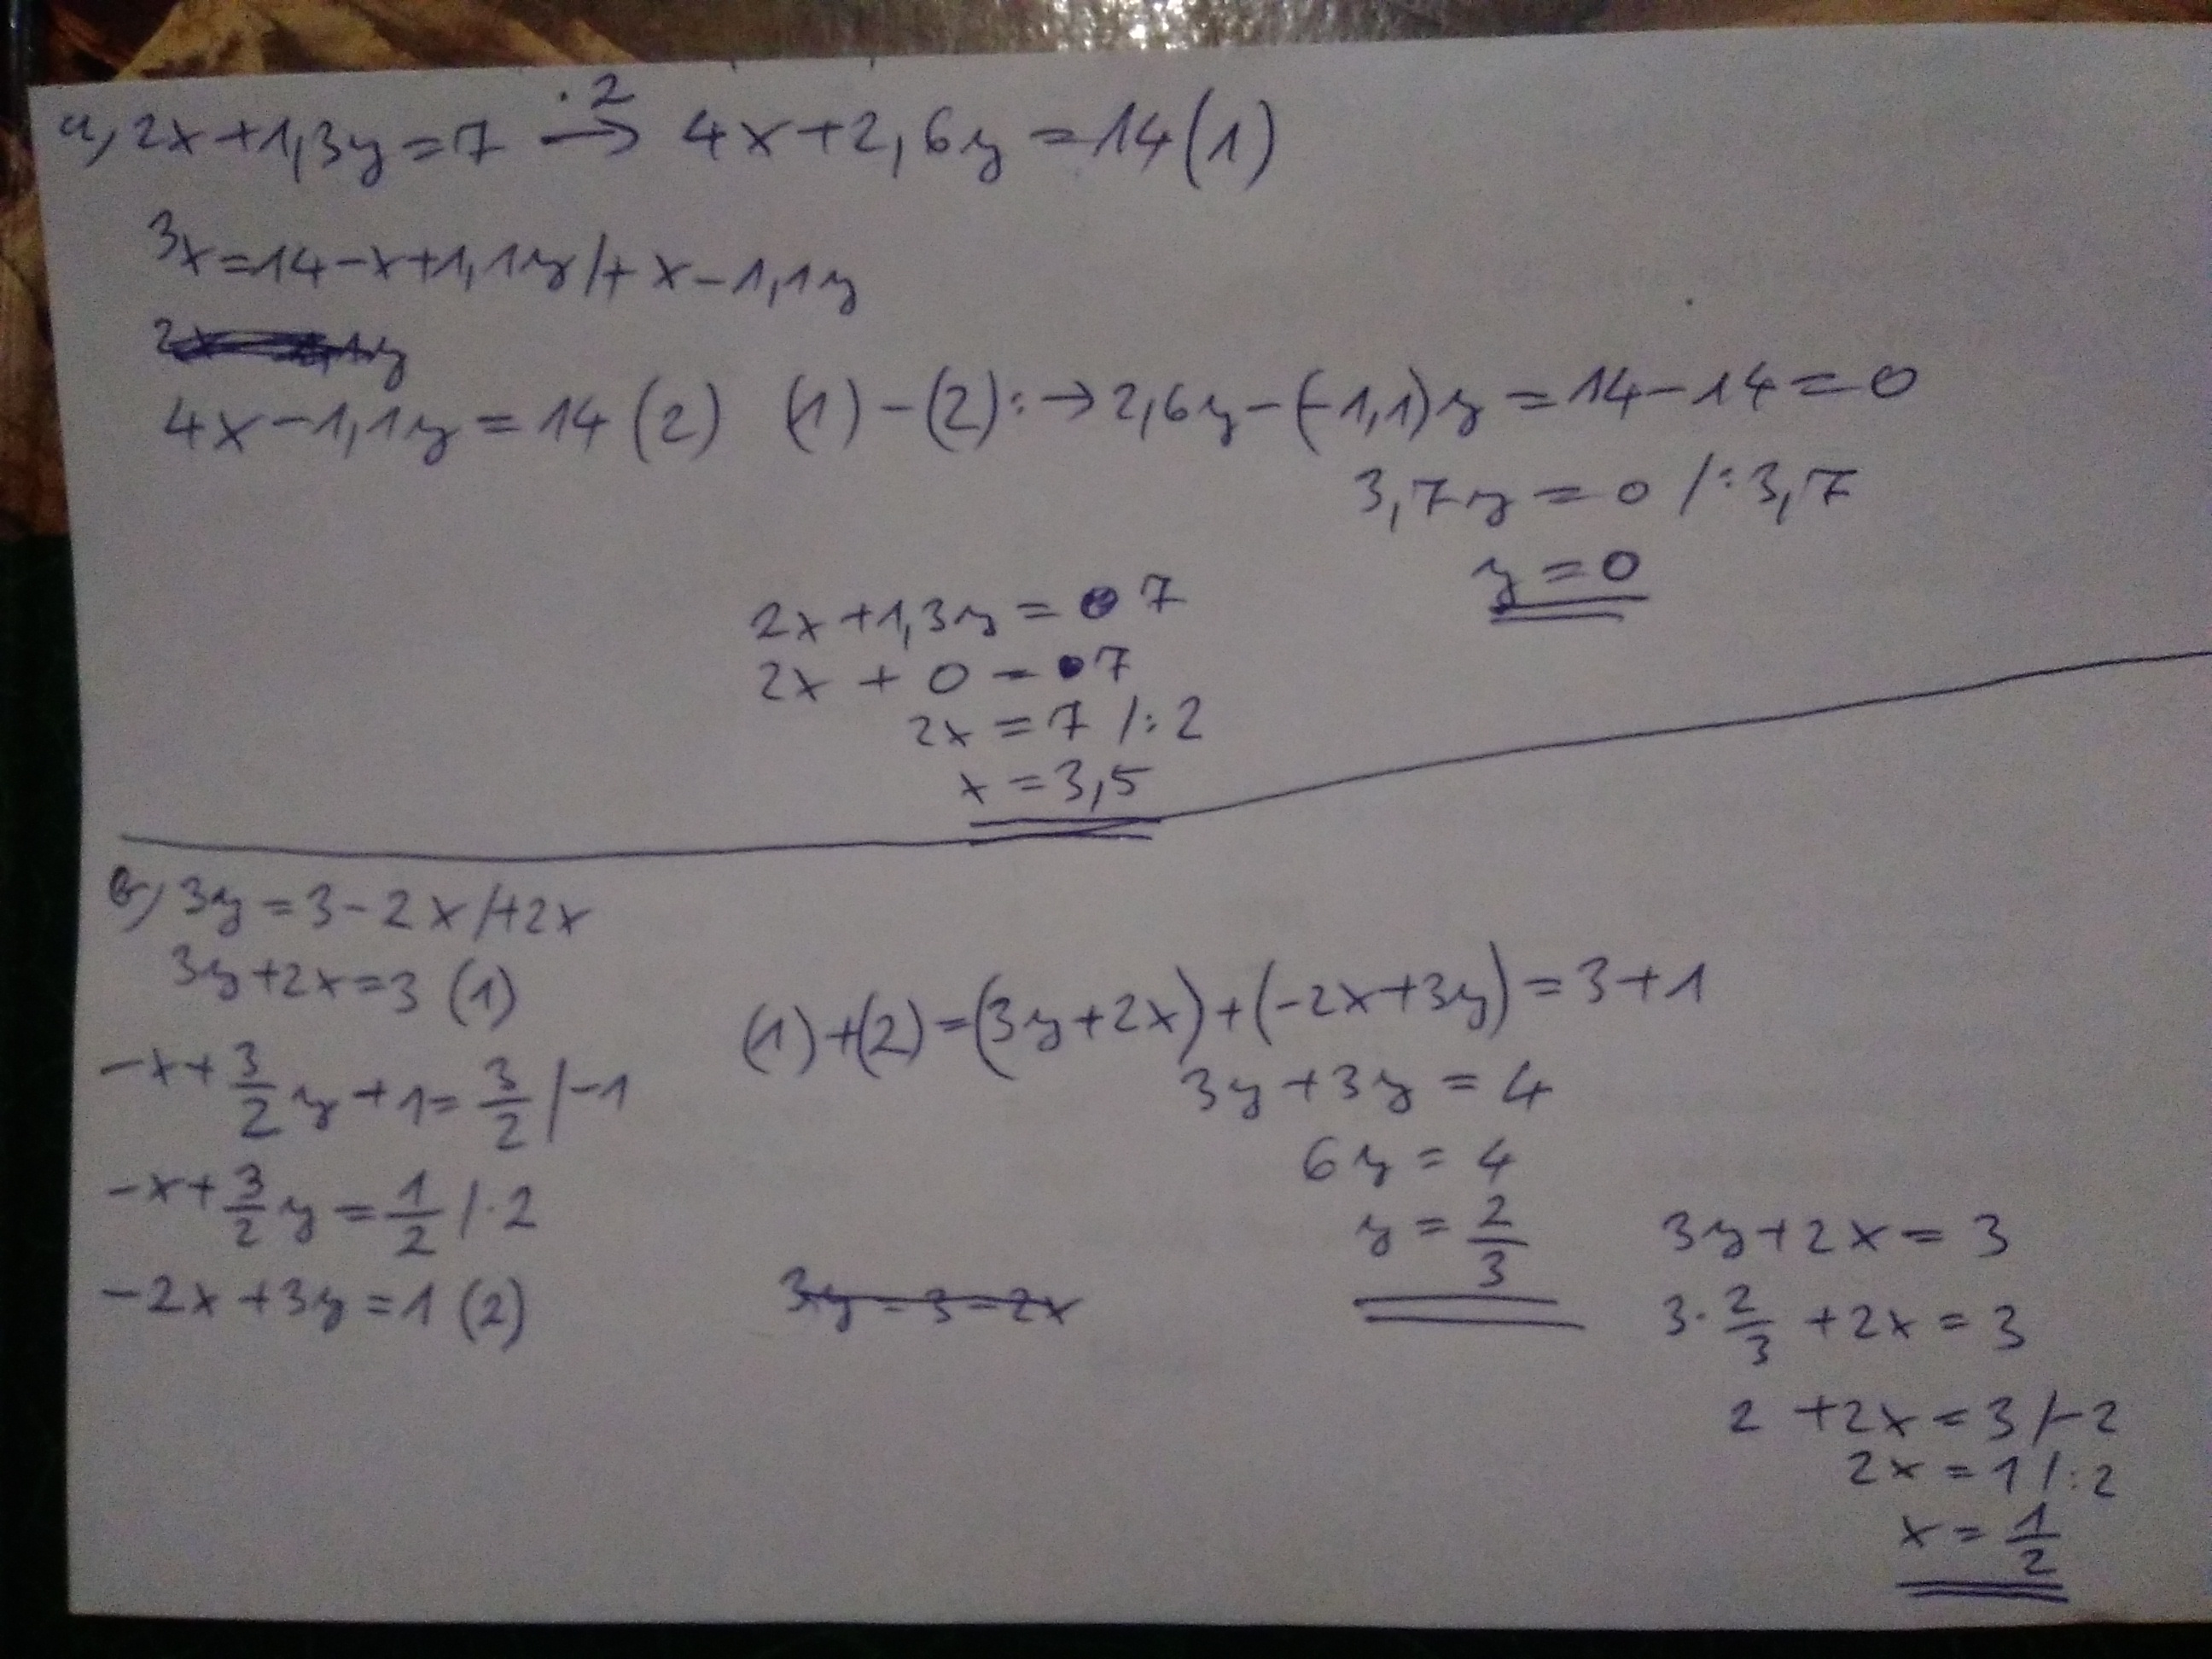 a) 2x+1,3y=7 ·2→ 4x+2,6y=14(1)
3x=14-x+1,1y/+x-1,1y
4x-1,1y=14(2) (1)-(2):→2,6y-(-1,1)y=14-14=0
3,7y=0/:3,7
y=0
2x+1,3y=7
2x+0=7
2x=7/:2
x=3,5
b) 3y=3-2x/+2x
3y+2x=3(1)
-x+3/2y+1=3/2/-1
-x+3/2y=1/2/·2
-2x+3y=1(2)
(1)+(2)=(3y+2x)+(-2x+3y)=3+1
3y+3y=4
6y=4
y=2/3
3y=3-2x
3y+2x=3
3·2/3+2x=3
2+2x=3/-2
2x=1/:2
x=1/2